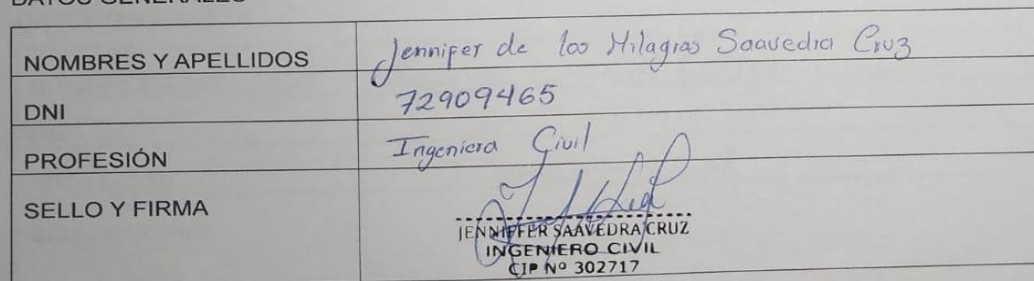 DATOS GENERALES
NOMBRES Y APELLIDOS Jennifer de los Milagros Saavedra Cruz
DNI 72909465
PROFESIÓN Ingeniera Civil
SELLO Y FIRMA
JENNIFFER SAAVEDRA CRUZ
INGENIERO CIVIL
CIP Nº 302717